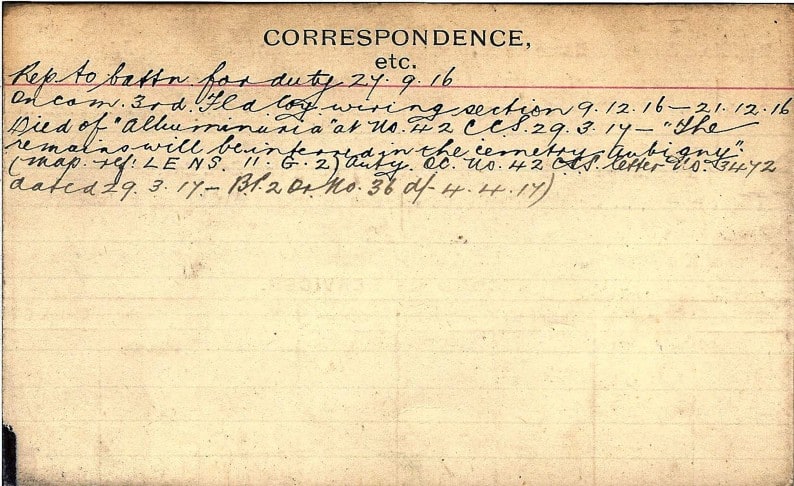 CORRESPONDENCE,
etc.
Rep to battn. for duty 27.9.16
On com. 3rd. Fld Coy. wiring section 9.12.16 — 21.12.16
Died of "Albuminuria" at No. 42 CCS. 29.3.17 — "The
remains will be interred in the cemetry Aubigny".
(map. ref. LENS. 11. G. 2) Auty. OC. No. 42 CCS. letter No. 3472
dated 29.3.17 — Pt. 2 Or. No. 36 d/- 4.4.17)